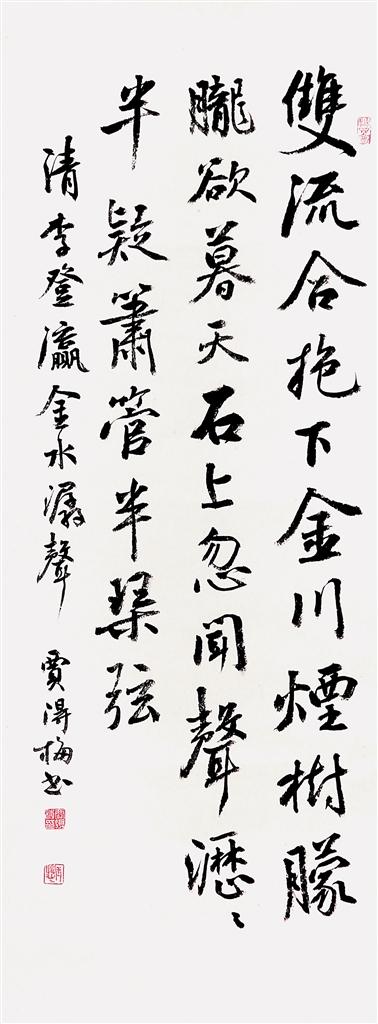 雙流合抱下金川煙樹朦
朧欲暮天石上忽聞聲瀝〻
半疑簫管半琹弦
清李登瀛金水潺聲 賈得梅書